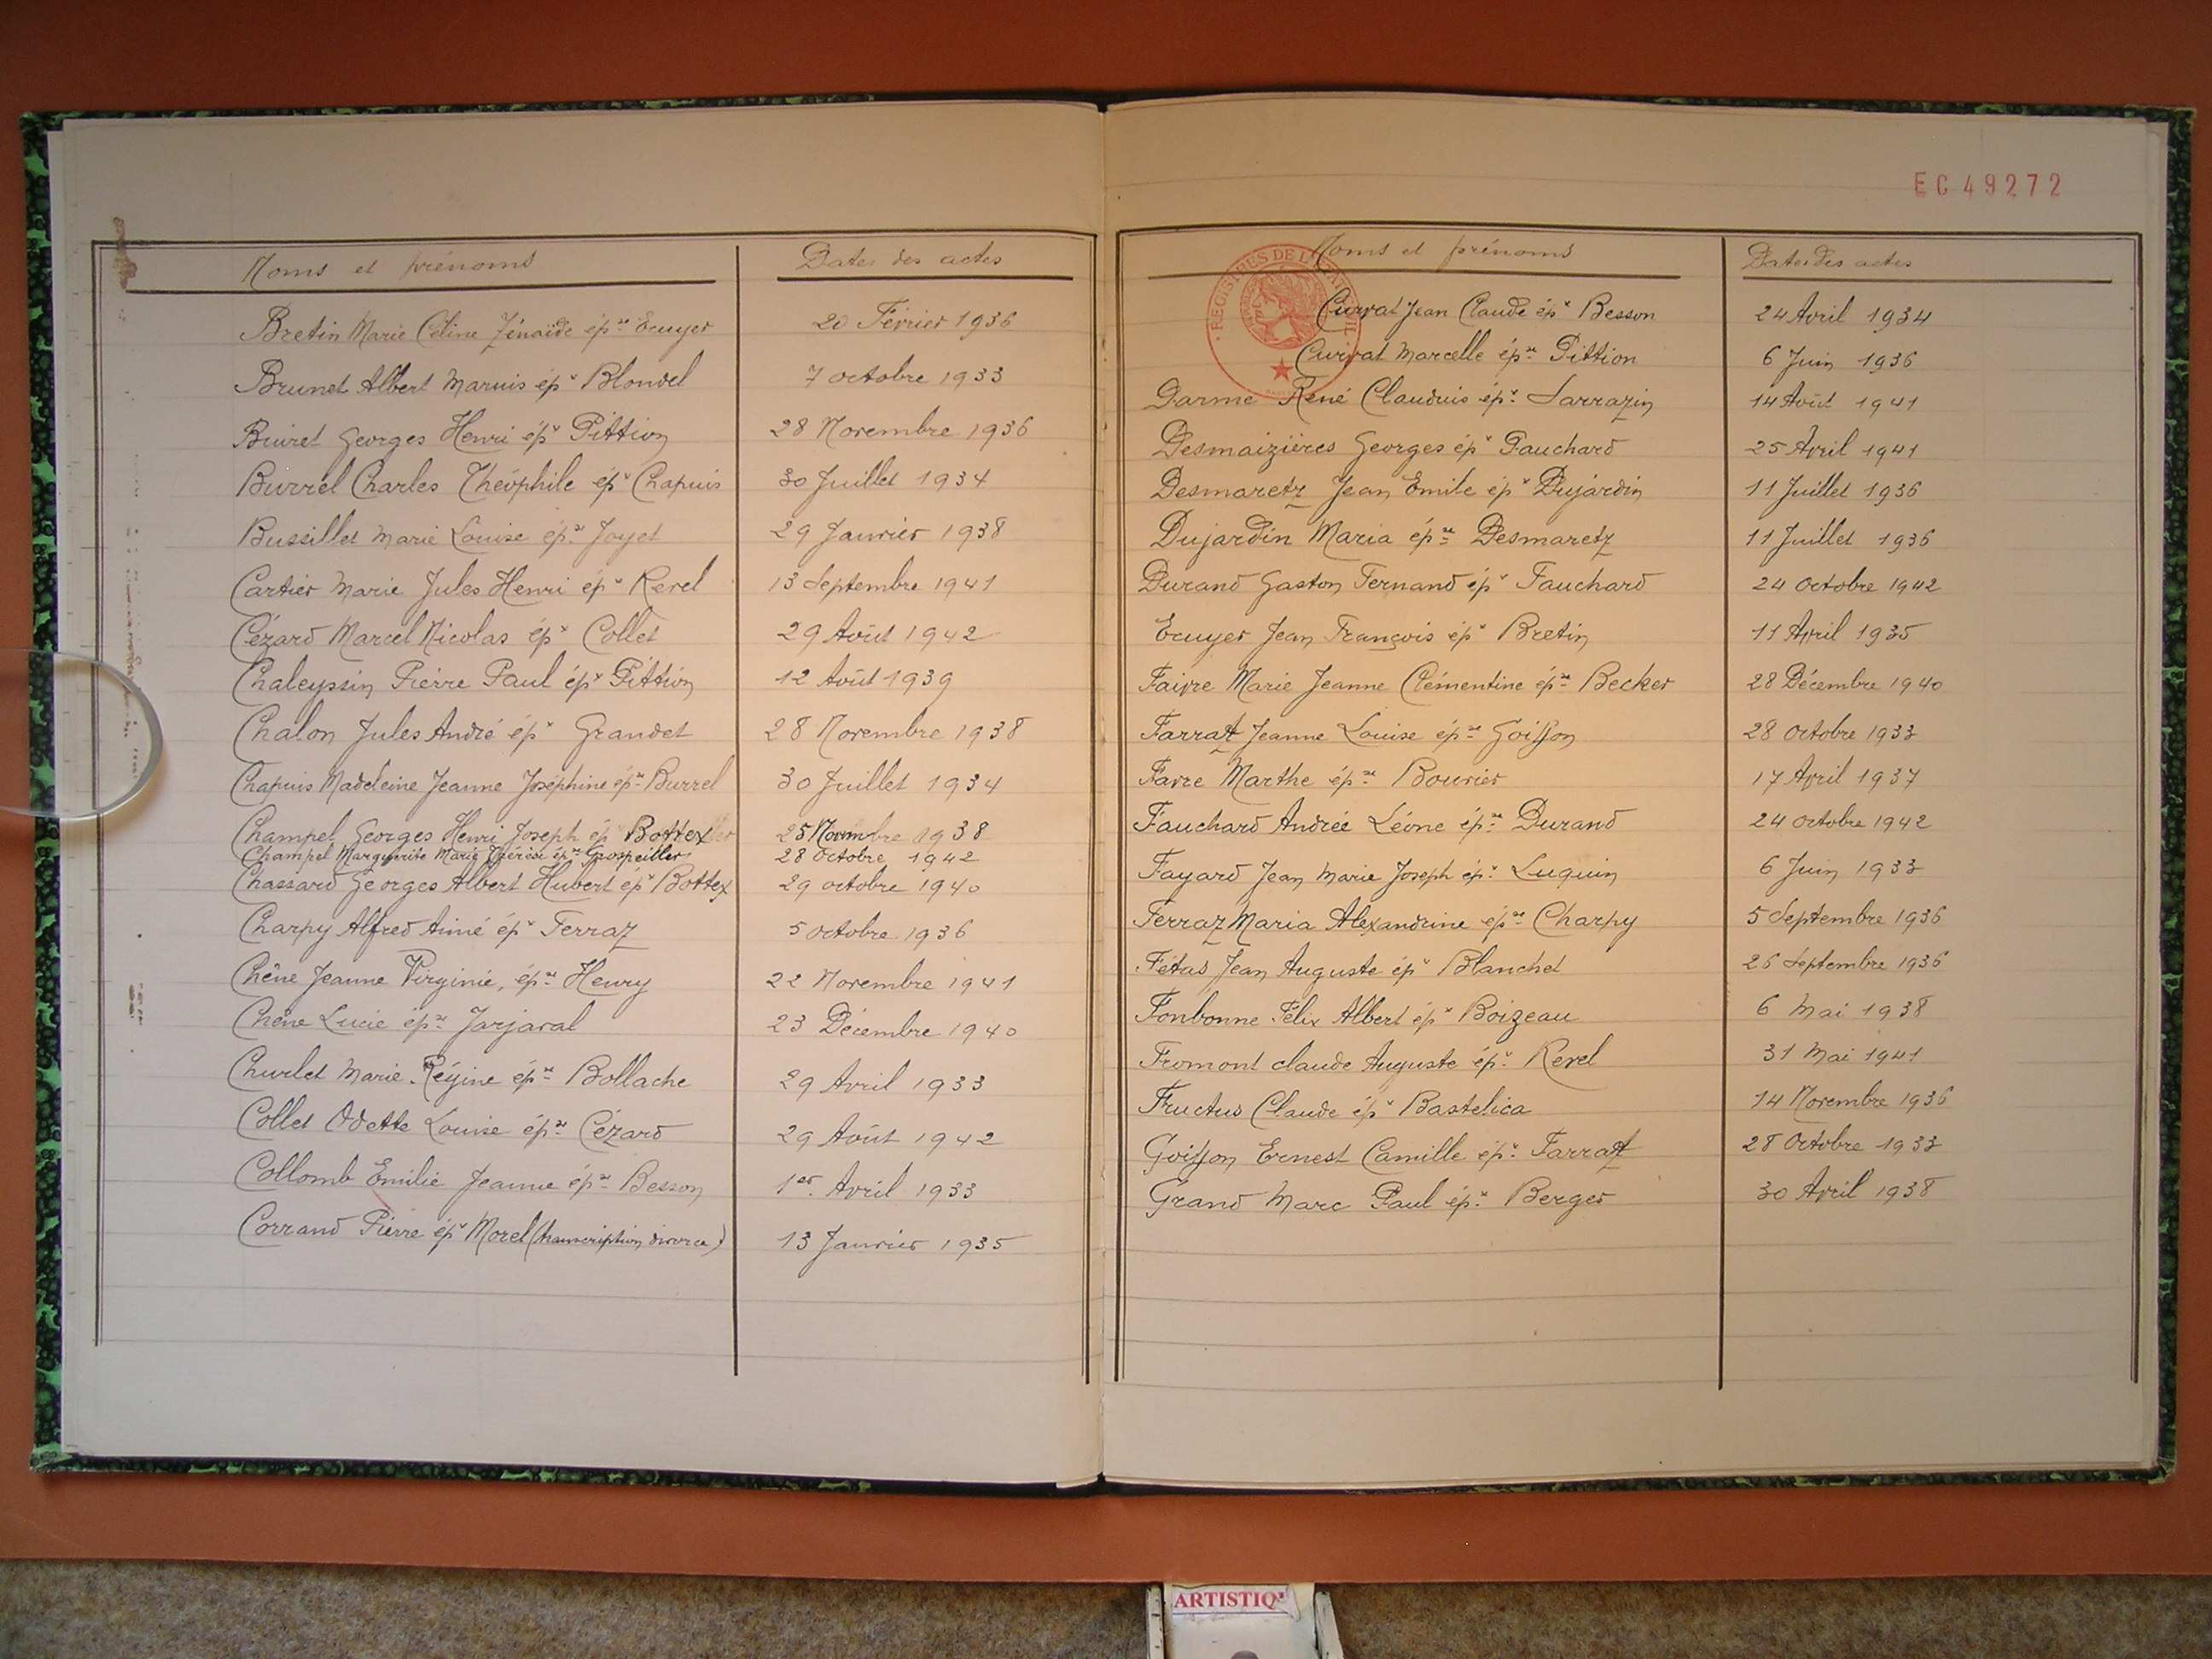 EC49272
Noms et prénoms Dates des actes
Bretin Marie Céline Zénaïde épse Ecuyer 20 Février 1936
Brunet Albert Marius épx Blondel 7 Octobre 1933
Buiret Georges Henri épx Pittion 28 Novembre 1936
Burrel Charles Théophile épx Chapuis 30 Juillet 1934
Bussillet Marie Louise épse Joyet 29 Janvier 1938
Cartier Marie Jules Henri épx Revel 13 Septembre 1941
Cézard Marcel Nicolas épx Collet 29 Août 1942
Chaleyssin Pierre Paul épx Pittion 12 Août 1939
Chalon Jules André épx Grandet 28 Novembre 1938
Chapuis Madeleine Jeanne Joséphine épse Burrel 30 Juillet 1934
Champel Georges Henri Joseph épx Bottex 25 Novembre 1938
Champel Marguerite Marie Thérèse épse Grospeiller 28 Octobre 1942
Chassard Georges Albert Hubert épx Bottex 29 octobre 1940
Charpy Alfred Aimé épx Ferraz 5 octobre 1936
Chêne Jeanne Virginie, épse Henry 22 Novembre 1941
Chêne Lucie épse Jarjaval 23 Décembre 1940
Churlet Marie Régine épse Bollache 29 Avril 1933
Collet Odette Louise épse Cézard 29 Août 1942
Collomb Emilie Jeanne épse Besson 1er Avril 1933
Corrand Pierre épx Morel (transcription divorce) 13 Janvier 1935
Noms et prénoms Dates des actes
REGISTRES DE L'ETAT CIVIL
Currat Jean Claude épx Besson 24 Avril 1934
Currat Marcelle épse Pittion 6 Juin 1936
Darme René Claudius épx Sarrazin 14 Août 1941
Desmaizières Georges épx Fauchard 25 Avril 1941
Desmaretz Jean Emile épx Dujardin 11 Juillet 1936
Dujardin Maria épse Desmaretz 11 Juillet 1936
Durand Gaston Fernand épx Fauchard 24 Octobre 1942
Ecuyer Jean François épx Bretin 11 Avril 1935
Faivre Marie Jeanne Clémentine épse Becker 28 Décembre 1940
Farrat Jeanne Louise épse Goiffon 28 Octobre 1933
Favre Marthe épse Bouvier 17 Avril 1937
Fauchard Andrée Léone épse Durand 24 Octobre 1942
Fayard Jean Marie Joseph épx Luquin 6 Juin 1933
Ferraz Maria Alexandrine épse Charpy 5 Septembre 1936
Fétas Jean Auguste épx Blanchet 26 Septembre 1936
Fonbonne Félix Albert épx Boizeau 6 Mai 1938
Fromont claude Auguste épx Revel 31 Mai 1941
Fructus Claude épx Bastelica 14 Novembre 1936
Goiffon Ernest Camille épx Farrat 28 Octobre 1933
Grand Marc Paul épx Berger 30 Avril 1938
ARTISTIQ